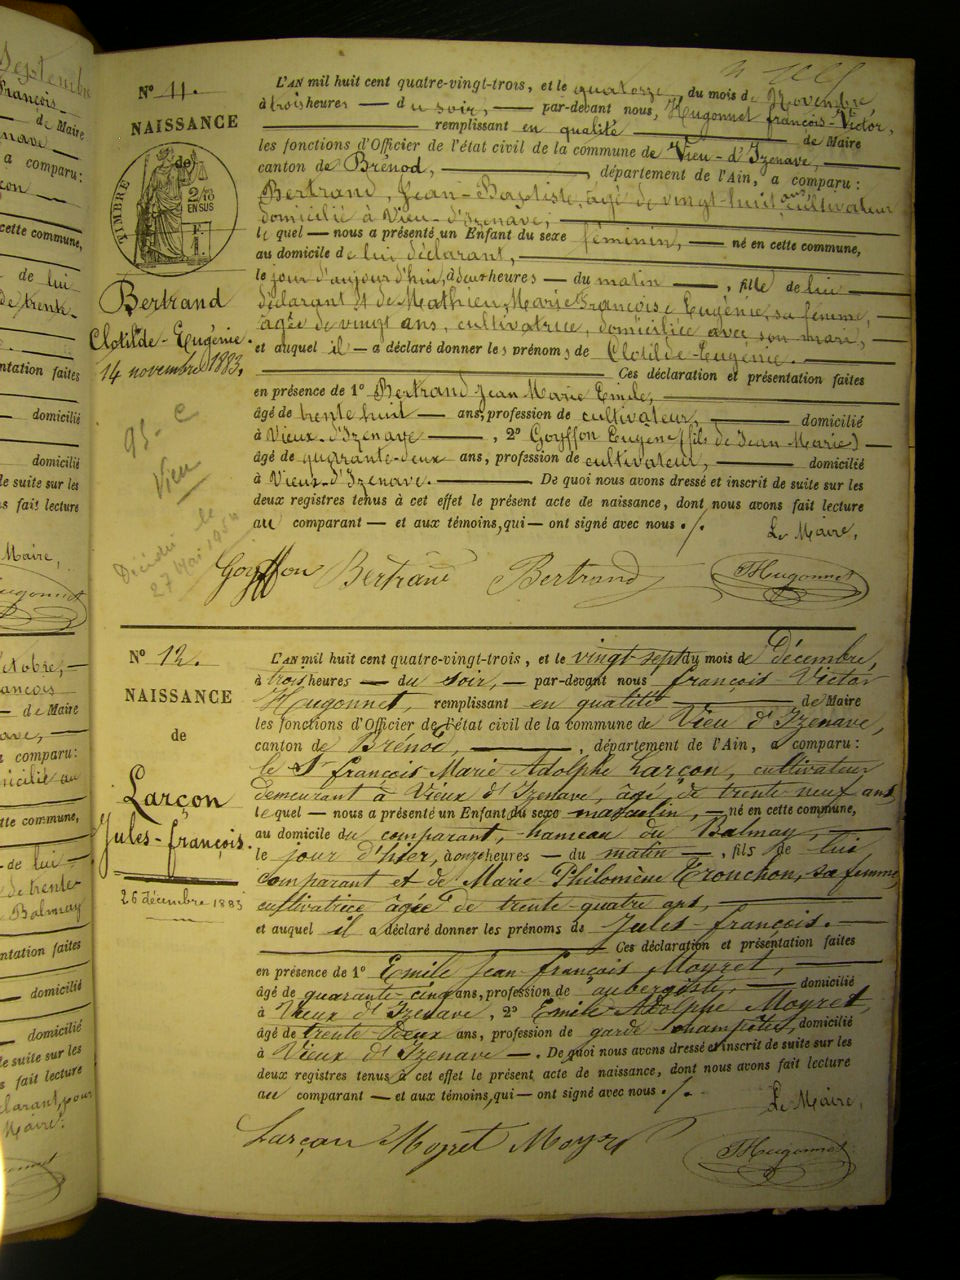 Nº 11.
NAISSANCE
de
TIMBRE
2/10
EN SUS
Bertrand
Clotilde-Eugénie.
14 novembre 1883.
95- C
Vieu
Décédée le
27 Mai 1954
L'AN mil huit cent quatre-vingt-trois, et le quatorze du mois de Novembre,
à trois heures — du soir, — par-devant nous, Hugonnet françois-Victor,
remplissant en qualité de Maire
les fonctions d'Officier de l'état civil de la commune de Vieu-d'Izenave,
canton de Brénod, département de l'Ain, a comparu :
Bertrand, Jean-Baptiste, âgé de vingt-huit ans, cultivateur
domicilié à Vieu-d'Izenave,
lequel — nous a présenté un Enfant du sexe féminin, — né en cette commune,
au domicile de lui déclarant,
le jour d'aujourd'hui, à deux heures — du matin —, fille de lui
déclarant et de Mathieu, Marie Françoise Eugénie, sa femme,
âgée de vingt ans, cultivatrice, domiciliée avec son mari,
et auquel il — a déclaré donner les prénoms de Clotilde-Eugénie.
Ces déclaration et présentation faites
en présence de 1º Bertrand Jean Marie Emile,
âgé de trente huit — ans, profession de cultivateur, domicilié
à Vieux-d'Izenave —, 2º Goyffon Eugène (fils de Jean-Marie)
âgé de quarante-deux ans, profession de cultivateur, domicilié
à Vieux-d'Izenave. — De quoi nous avons dressé et inscrit de suite sur les
deux registres tenus à cet effet le présent acte de naissance, dont nous avons fait lecture
au comparant — et aux témoins, qui — ont signé avec nous ./.
Le Maire,
Goyffon Bertrand Bertrand FHugonnet
Nº 12.
NAISSANCE
de
Larçon
Jules-françois.
26 décembre 1883
L'AN mil huit cent quatre-vingt-trois, et le vingt-sept du mois de Décembre,
à trois heures — du soir, — par-devant nous françois Victor
Hugonnet, remplissant en qualité de Maire
les fonctions d'Officier de l'état civil de la commune de Vieu d'Izenave,
canton de Brénod, département de l'Ain, a comparu :
le Sr françois Marie Adolphe Larçon, cultivateur
demeurant à Vieux d'Izenave, âgé de trente neuf ans
lequel — nous a présenté un Enfant du sexe masculin, — né en cette commune,
au domicile du comparant, hameau du Balmay,
le jour d'hier, à onze heures — du matin —, fils de lui
comparant et de Marie-Philomène Tronchon, sa femme,
cultivatrice âgée de trente-quatre ans,
et auquel il a déclaré donner les prénoms de Jules-françois.
Ces déclaration et présentation faites
en présence de 1º Emile Jean-françois Moyret,
âgé de quarante-cinq ans, profession de aubergiste, domicilié
à Vieux d'Izenave, 2º Emile-Adolphe Moyret,
âgé de trente-deux ans, profession de garde-champêtre, domicilié
à Vieux d'Izenave —. De quoi nous avons dressé et inscrit de suite sur les
deux registres tenus à cet effet le présent acte de naissance, dont nous avons fait lecture
au comparant — et aux témoins, qui — ont signé avec nous ./.
Le Maire,
Larçon Moyret Moyret FHugonnet